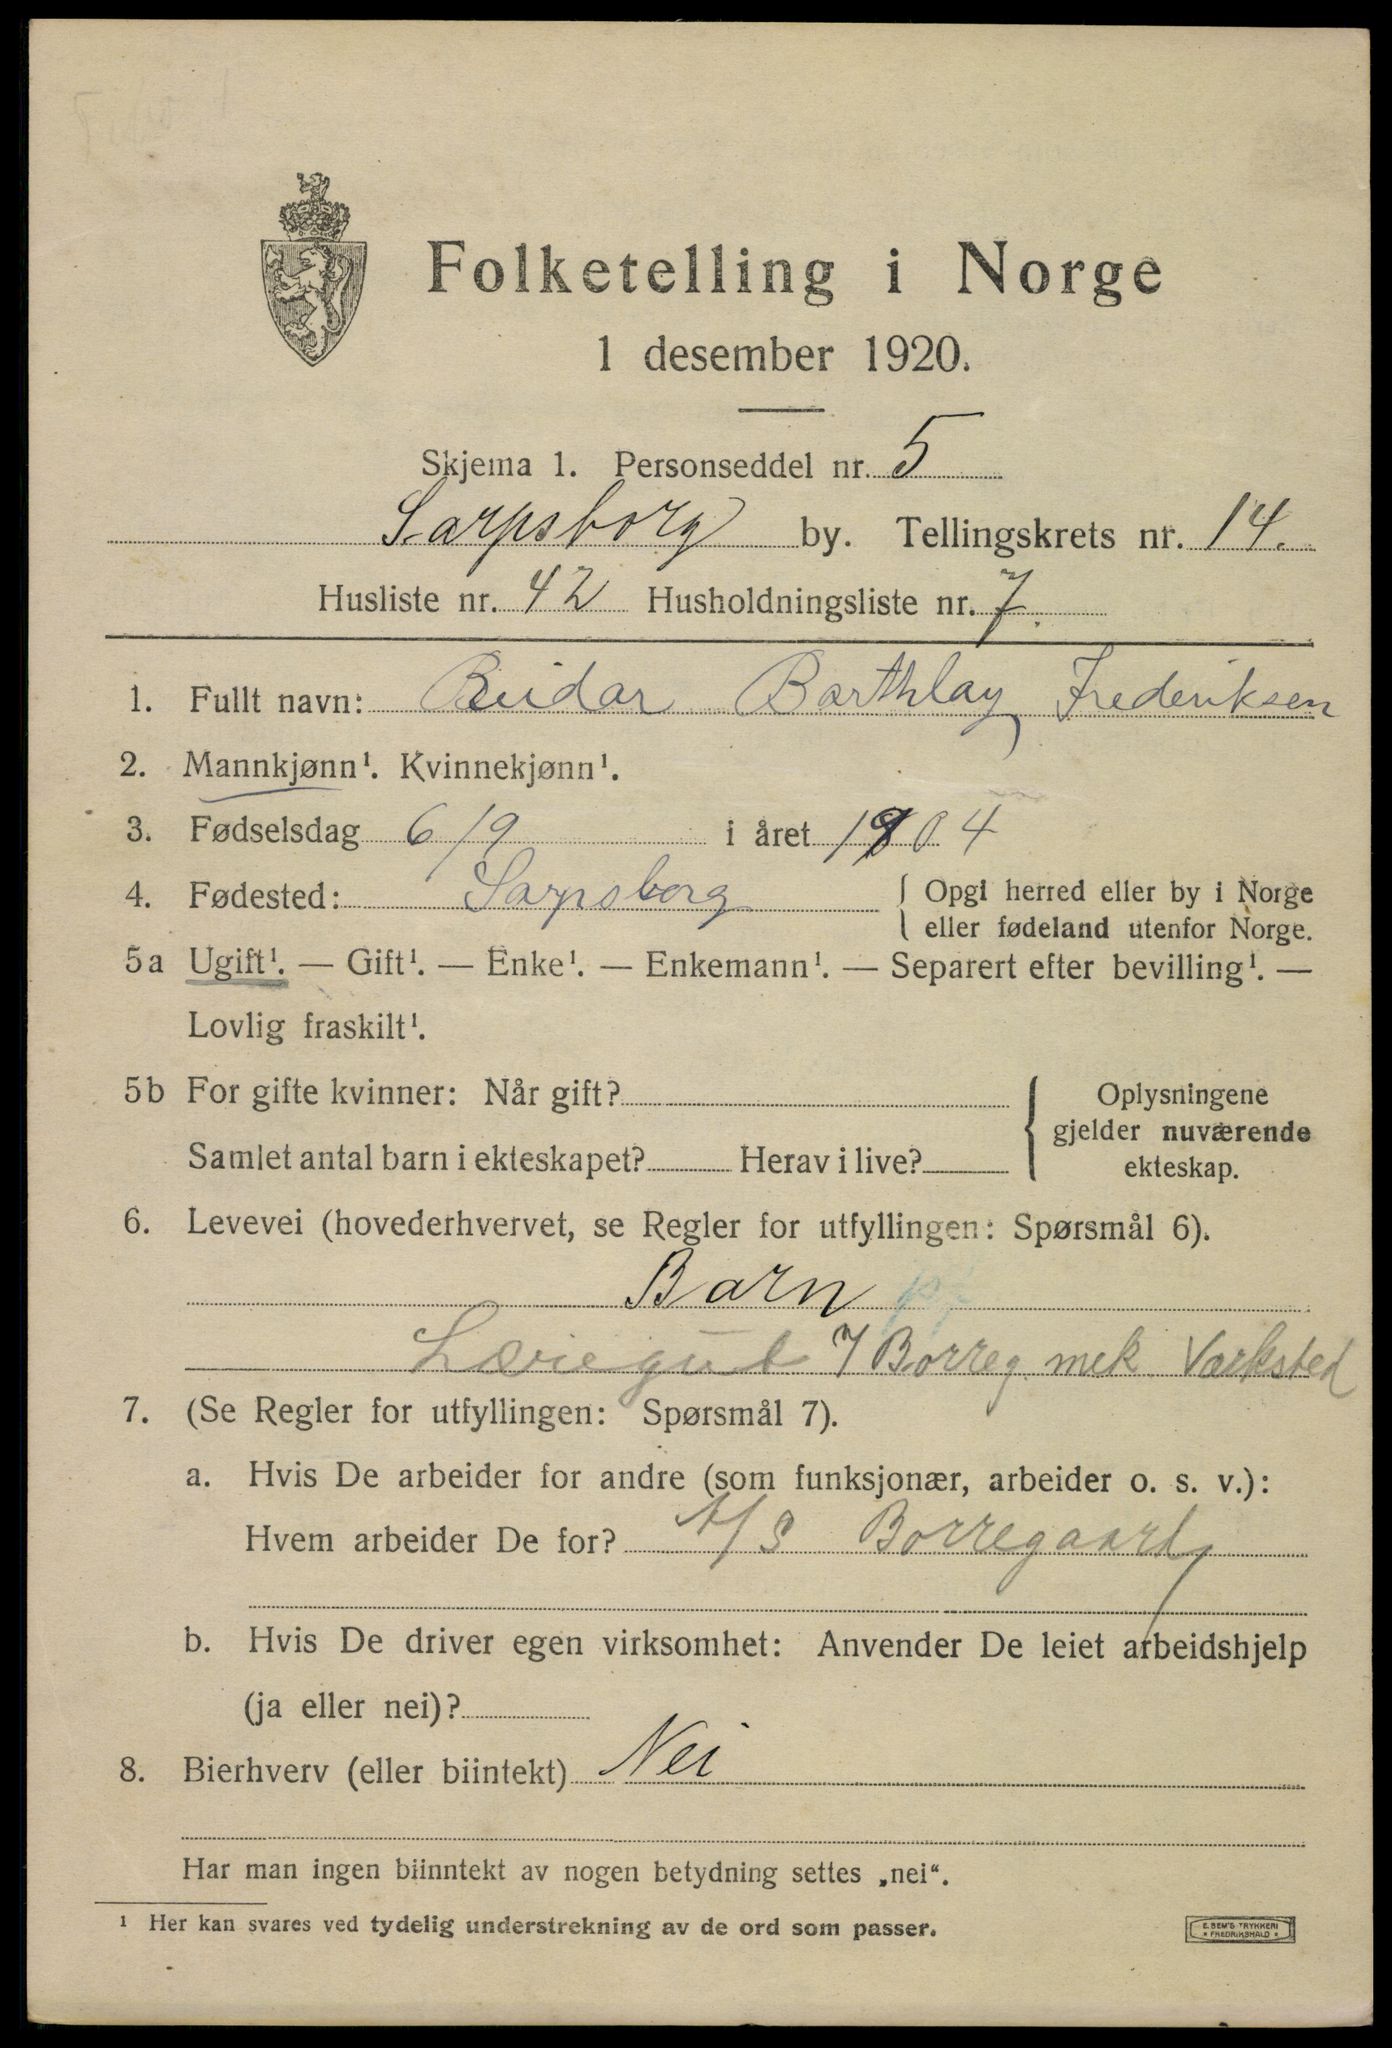 Folketelling i Norge
1 desember 1920.
Skjema 1. Personseddel nr. 5
Sarpsborg by. Tellingskrets nr. 14.
Husliste nr. 42 Husholdningsliste nr. 7.
1. Fullt navn: Reidar Barthlay Frederiksen
2. Mannkjønn¹. Kvinnekjønn¹.
3. Fødselsdag 6/9 i året 1904
4. Fødested: Sarpsborg { Opgi herred eller by i Norge
eller fødeland utenfor Norge.
5a Ugift¹. — Gift¹. — Enke¹. — Enkemann¹. — Separert efter bevilling¹. —
Lovlig fraskilt¹.
5b For gifte kvinner: Når gift? Oplysningene
gjelder nuværende
Samlet antal barn i ekteskapet? Herav i live? ekteskap.
6. Levevei (hovederhvervet, se Regler for utfyllingen: Spørsmål 6).
Barn
Læriegut i Borreg. mek Værksted
7. (Se Regler for utfyllingen: Spørsmål 7).
a. Hvis De arbeider for andre (som funksjonær, arbeider o. s. v.):
Hvem arbeider De for? A/S Borregaard
b. Hvis De driver egen virksomhet: Anvender De leiet arbeidshjelp
(ja eller nei)?
8. Bierhverv (eller biintekt) Nei
Har man ingen biinntekt av nogen betydning settes „nei“.
¹ Her kan svares ved tydelig understrekning av de ord som passer.
E. SEM'S TRYKKERI
* FREDRIKSHALD *